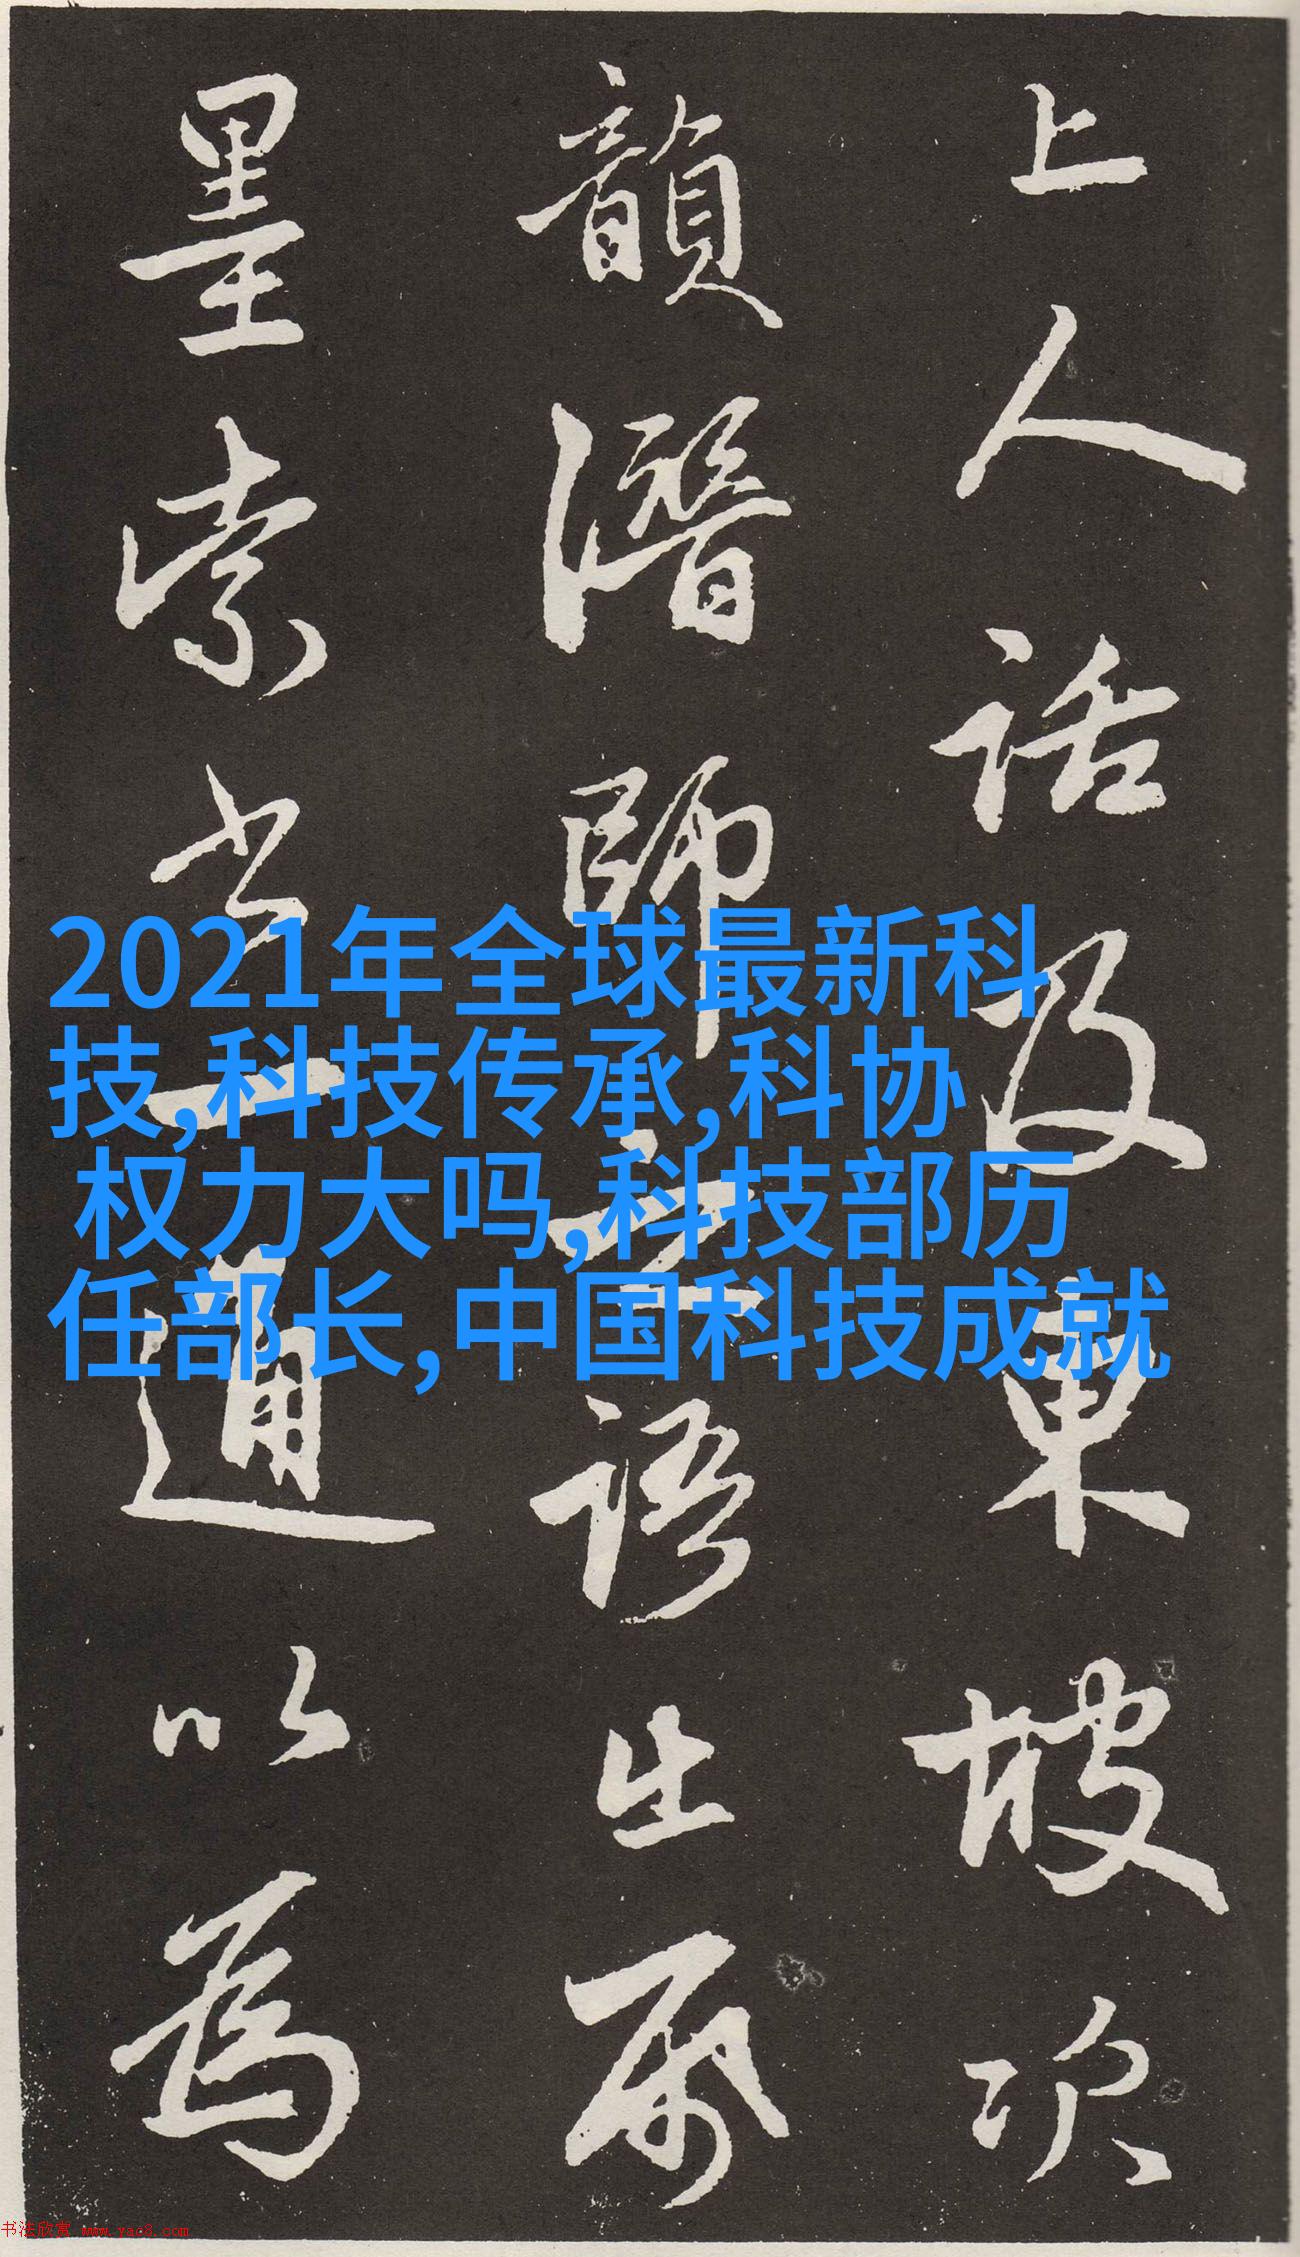 上人話及東坡次
韻潛師之語出所
墨索書一通以為
2021年全球最新科
技,科技传承,科协
权力大吗,科技部历
任部长,中国科技成就
书法欣赏 www.yac8.com